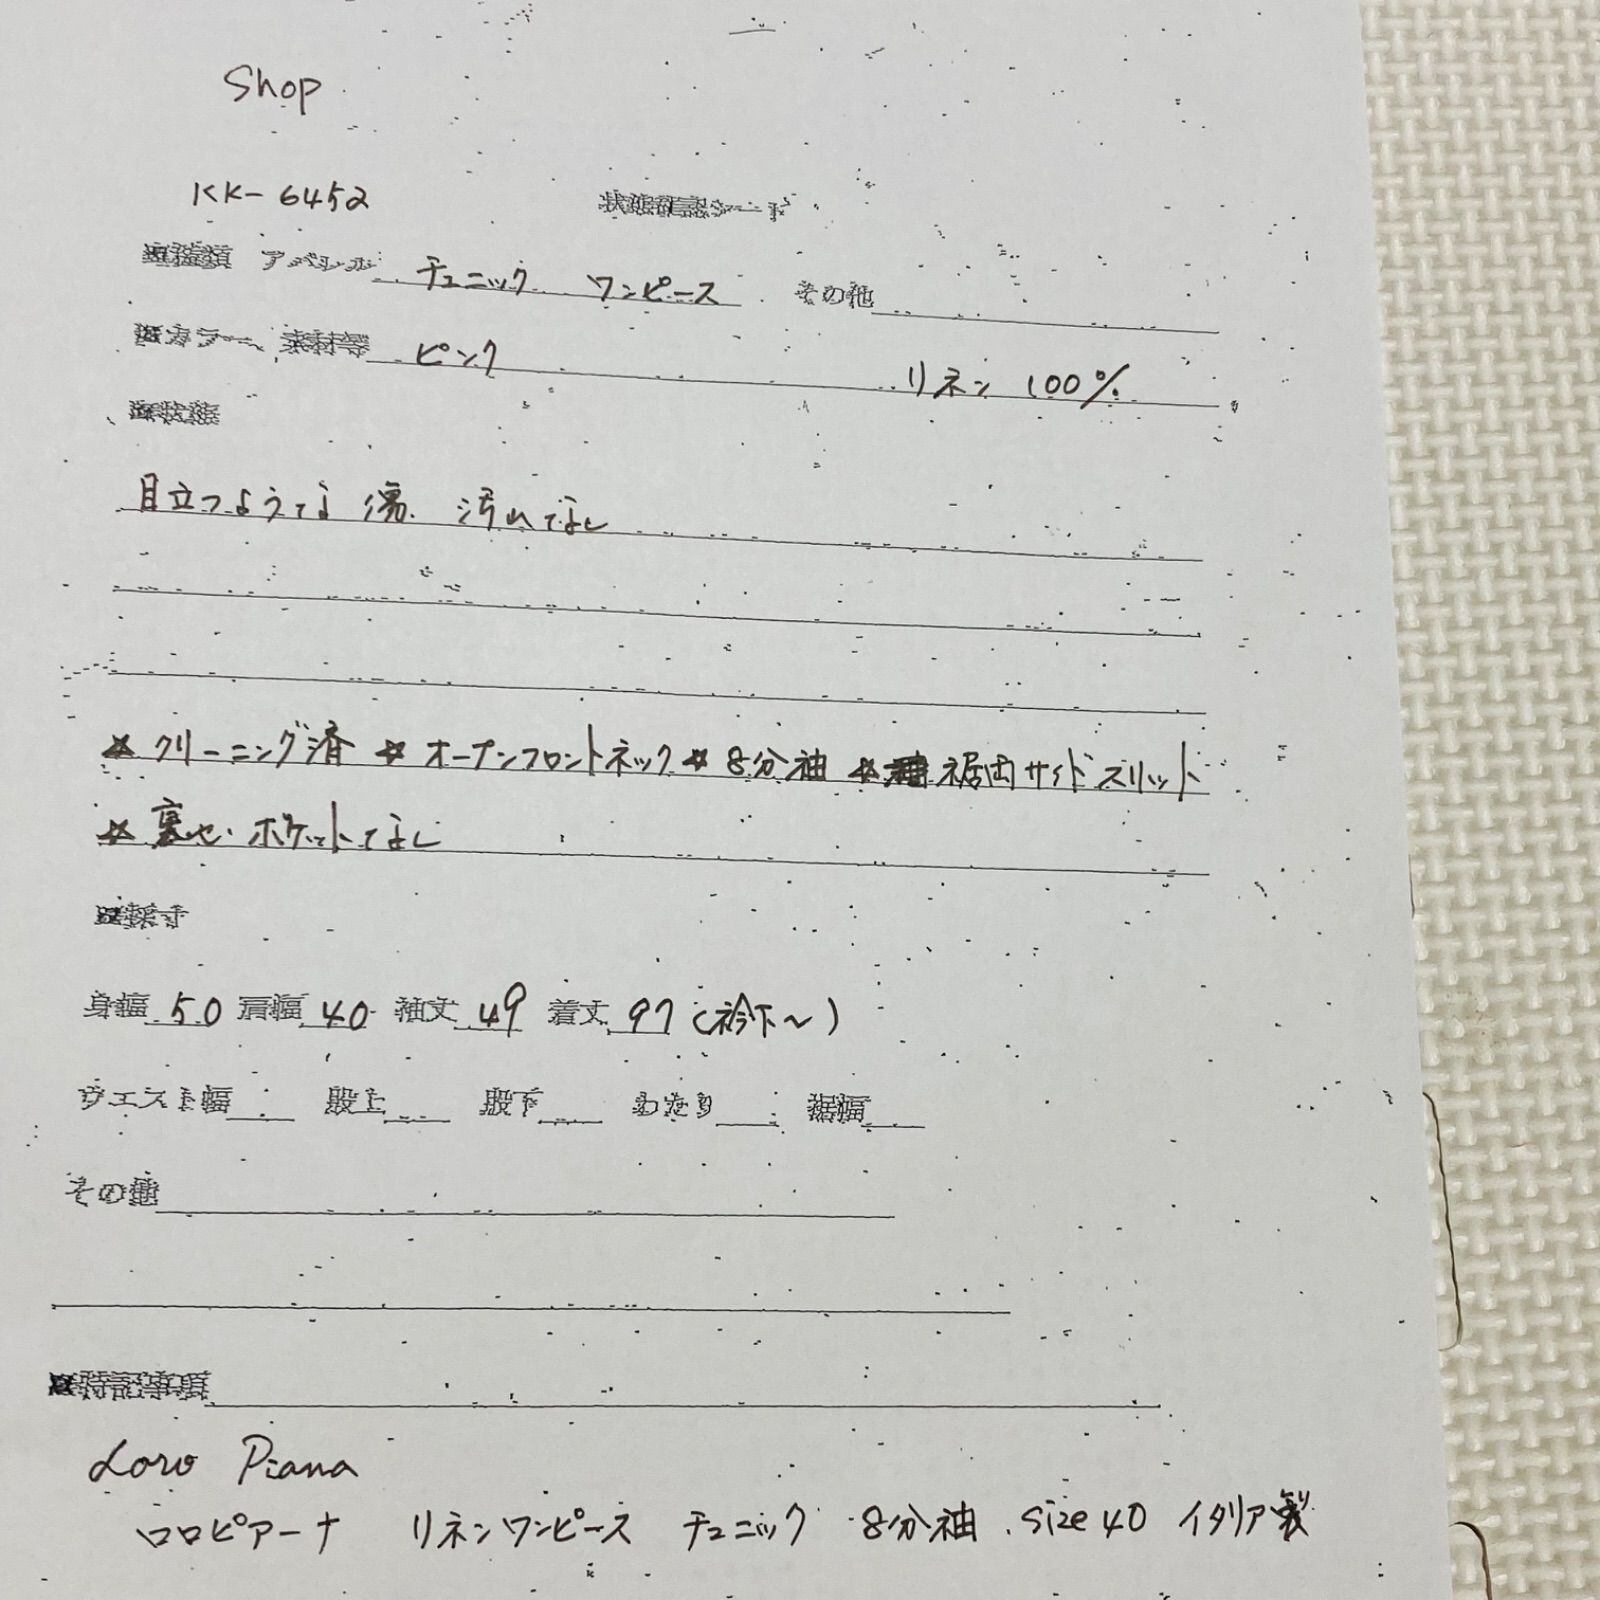 Shop
KK-6452 状態確認シート
■種類 アパレル チュニック ワンピース その他
■カラー、素材等 ピンク リネン 100%
■状態
目立つような傷. 汚れなし
☆クリーニング済 ☆オープンフロントネック☆8分袖 ☆裾両サイドスリット
☆裏地・ポケットなし
■採寸
身幅 50 肩幅 40 袖丈 49 着丈 97 (衿下〜)
ウエスト幅 股上 股下 わたり 裾幅
その他
■特記事項
Loro Piana
ロロピアーナ リネンワンピース チュニック 8分袖 size 40 イタリア製